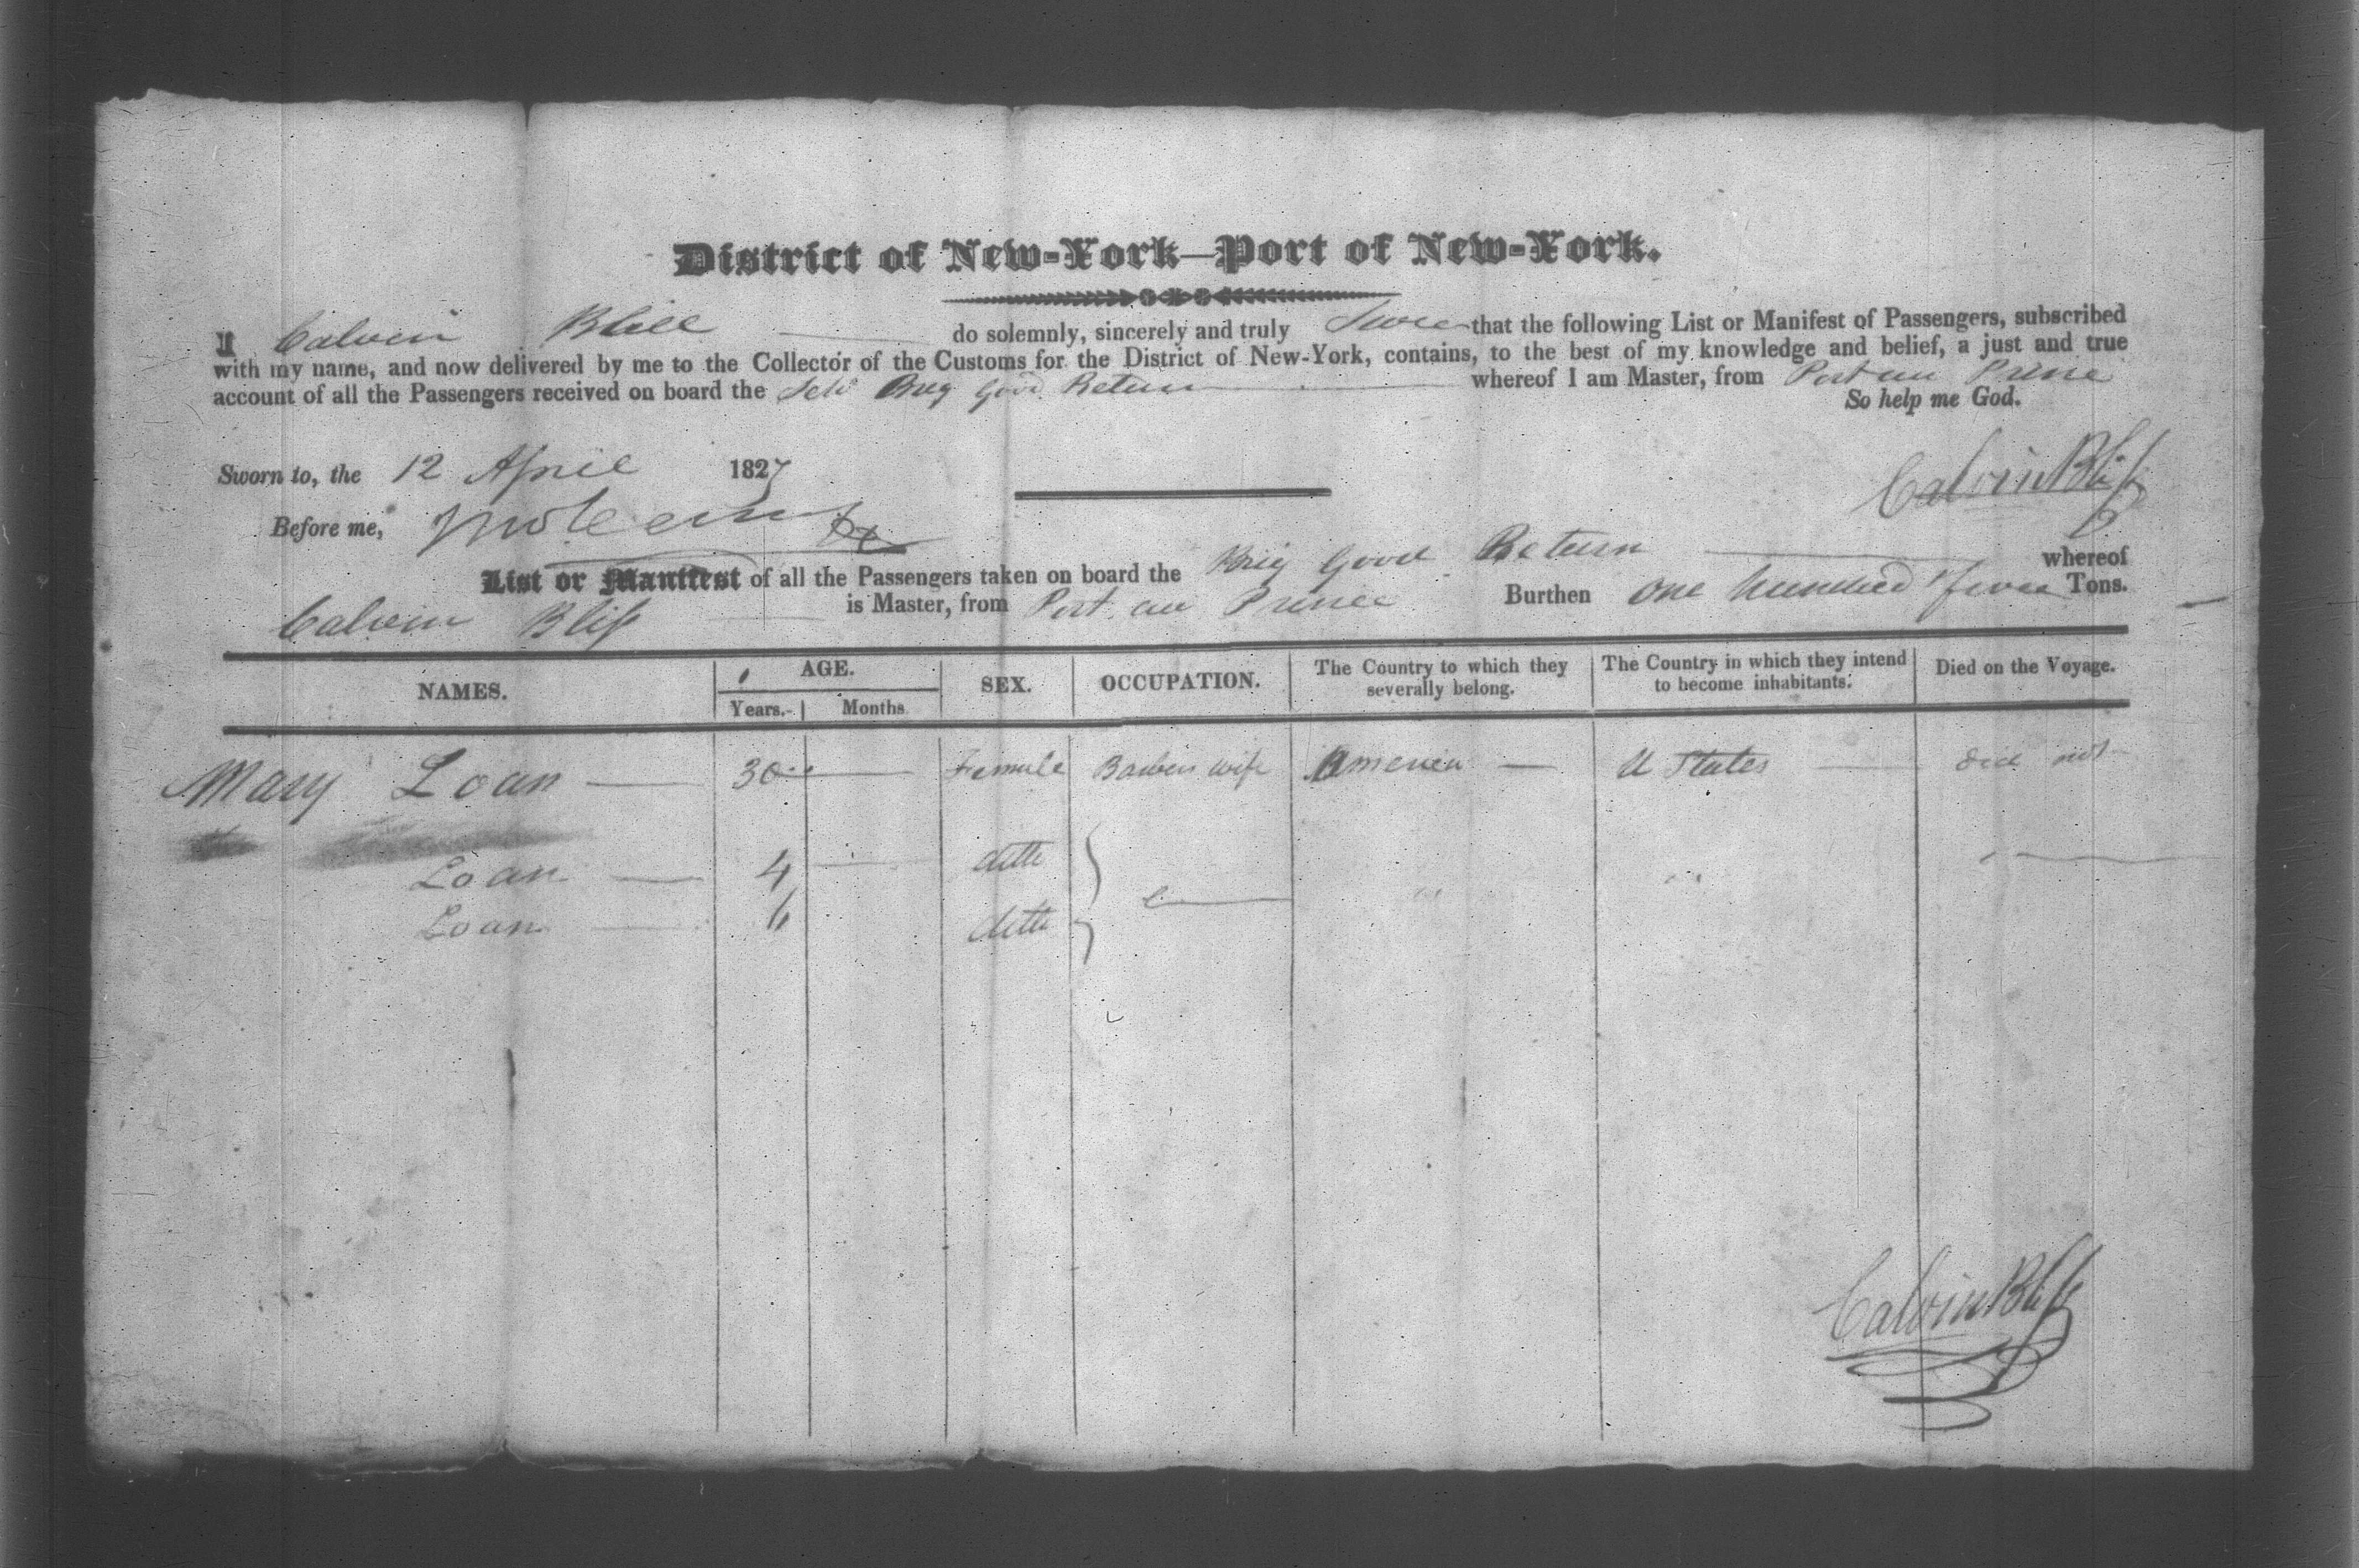 District of New-York—Port of New-York.
I Calvin Bliss do solemnly, sincerely and truly Swear that the following List or Manifest of Passengers, subscribed
with my name, and now delivered by me to the Collector of the Customs for the District of New-York, contains, to the best of my knowledge and belief, a just and true
account of all the Passengers received on board the Brig Good Return whereof I am Master, from Port au Prince
So help me God.
Sworn to, the 12 April 1827
Calvin Bliss
Before me,
List or Manifest of all the Passengers taken on board the Brig Good Return whereof
Calvin Bliss is Master, from Port au Prince Burthen One hundred Tons.
NAMES. AGE. SEX. OCCUPATION. The Country to which they severally belong. The Country in which they intend to become inhabitants. Died on the Voyage.
Years. Months
Mary Loan 30 Female Barbers wife America U States did not
Loan 4 ditto
Loan 6 ditto
Calvin Bliss